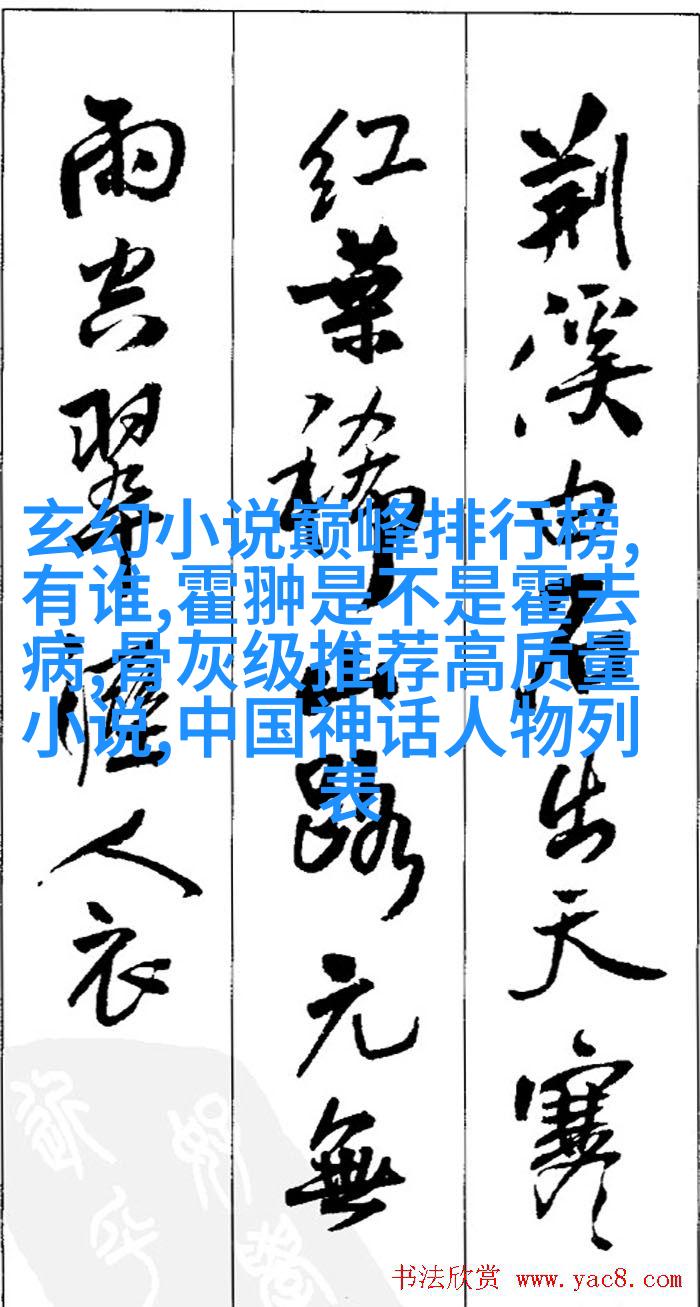 荆溪白石出天寒
红葉稀山路元無
雨空翠濕人衣
玄幻小说巅峰排行榜,
有谁,霍翀是不是霍去
病,骨灰级推荐高质量
小说,中国神话人物列
表
书法欣赏 www.yac8.com